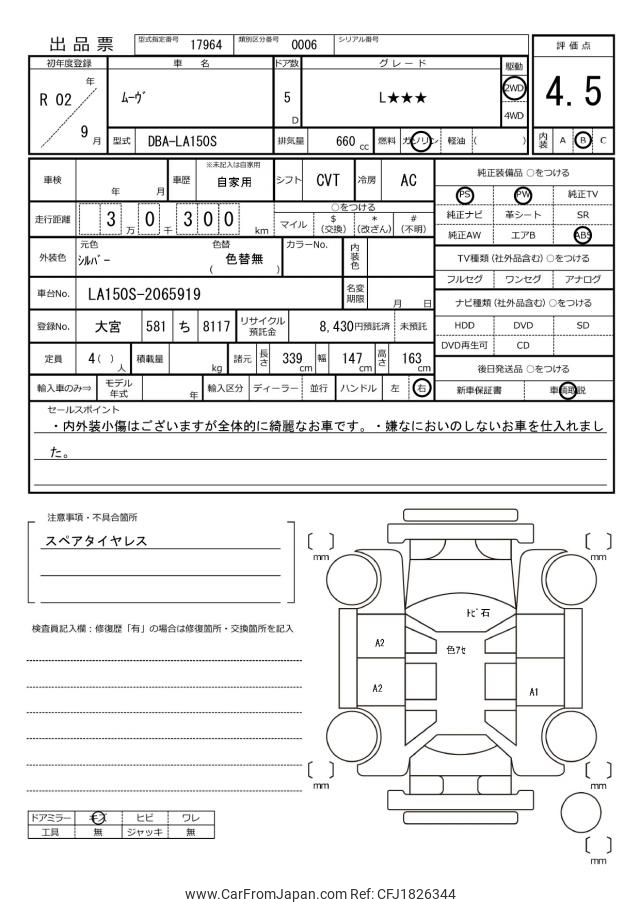 出品票 型式指定番号 17964 類別区分番号 0006 シリアル番号
評価点
4.5
初年度登録 車名 ドア数 グレード 駆動
R 02 年 9 月
ﾑｰｳﾞ 5 D L★★★ 2WD 4WD
型式 DBA-LA150S 排気量 660 cc 燃料 ガソリン 軽油 ( )
内装 A B C
車検 年 月 車歴 ※未記入は自家用 自家用 シフト CVT 冷房 AC
走行距離 3 万 0 千 300 km
○をつける
マイル $(交換) *(改ざん) #(不明)
外装色 元色 ｼﾙﾊﾞｰ 色替 ( 色替無 ) カラーNo. 内装色
車台No. LA150S-2065919 名変期限 月 日
登録No. 大宮 581 ち 8117 リサイクル預託金 8,430円預託済 未預託
定員 4( )人 積載量 kg 諸元 長さ 339 cm 幅 147 cm 高さ 163 cm
輸入車のみ⇒ モデル年式 年 輸入区分 ディーラー 並行 ハンドル 左 右
純正装備品 ○をつける
PS PW 純正TV
純正ナビ 革シート SR
純正AW エアB ABS
TV種類(社外品含む)○をつける
フルセグ ワンセグ アナログ
ナビ種類(社外品含む)○をつける
HDD DVD SD
DVD再生可 CD
後日発送品 ○をつける
新車保証書 車輌取説
セールスポイント
・内外装小傷はございますが全体的に綺麗なお車です。・嫌なにおいのしないお車を仕入れまし
た。
注意事項・不具合箇所
スペアタイヤレス
検査員記入欄：修復歴「有」の場合は修復箇所・交換箇所を記入
mm
mm
ﾄﾋﾞ石
A2
色ｱｾ
A2
A1
mm
mm
mm
ドアミラー キズ ヒビ ワレ
工具 無 ジャッキ 無
www.CarFromJapan.com Ref: CFJ1826344